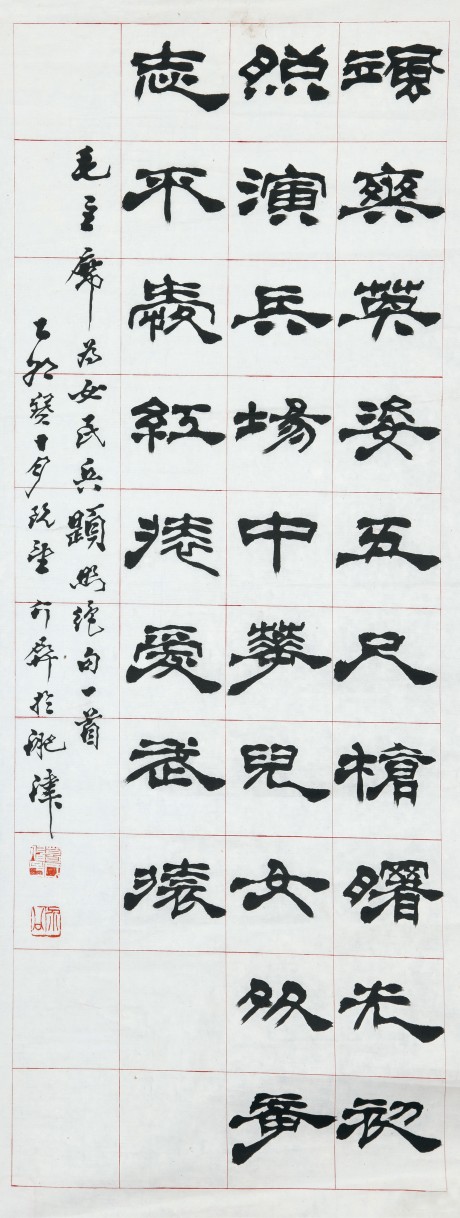 颯爽英姿五尺槍曙光初
照演兵場中華兒女多奇
志不愛紅裝愛武裝
毛主席為女民兵題照絕句一首
乙卯 於肥津